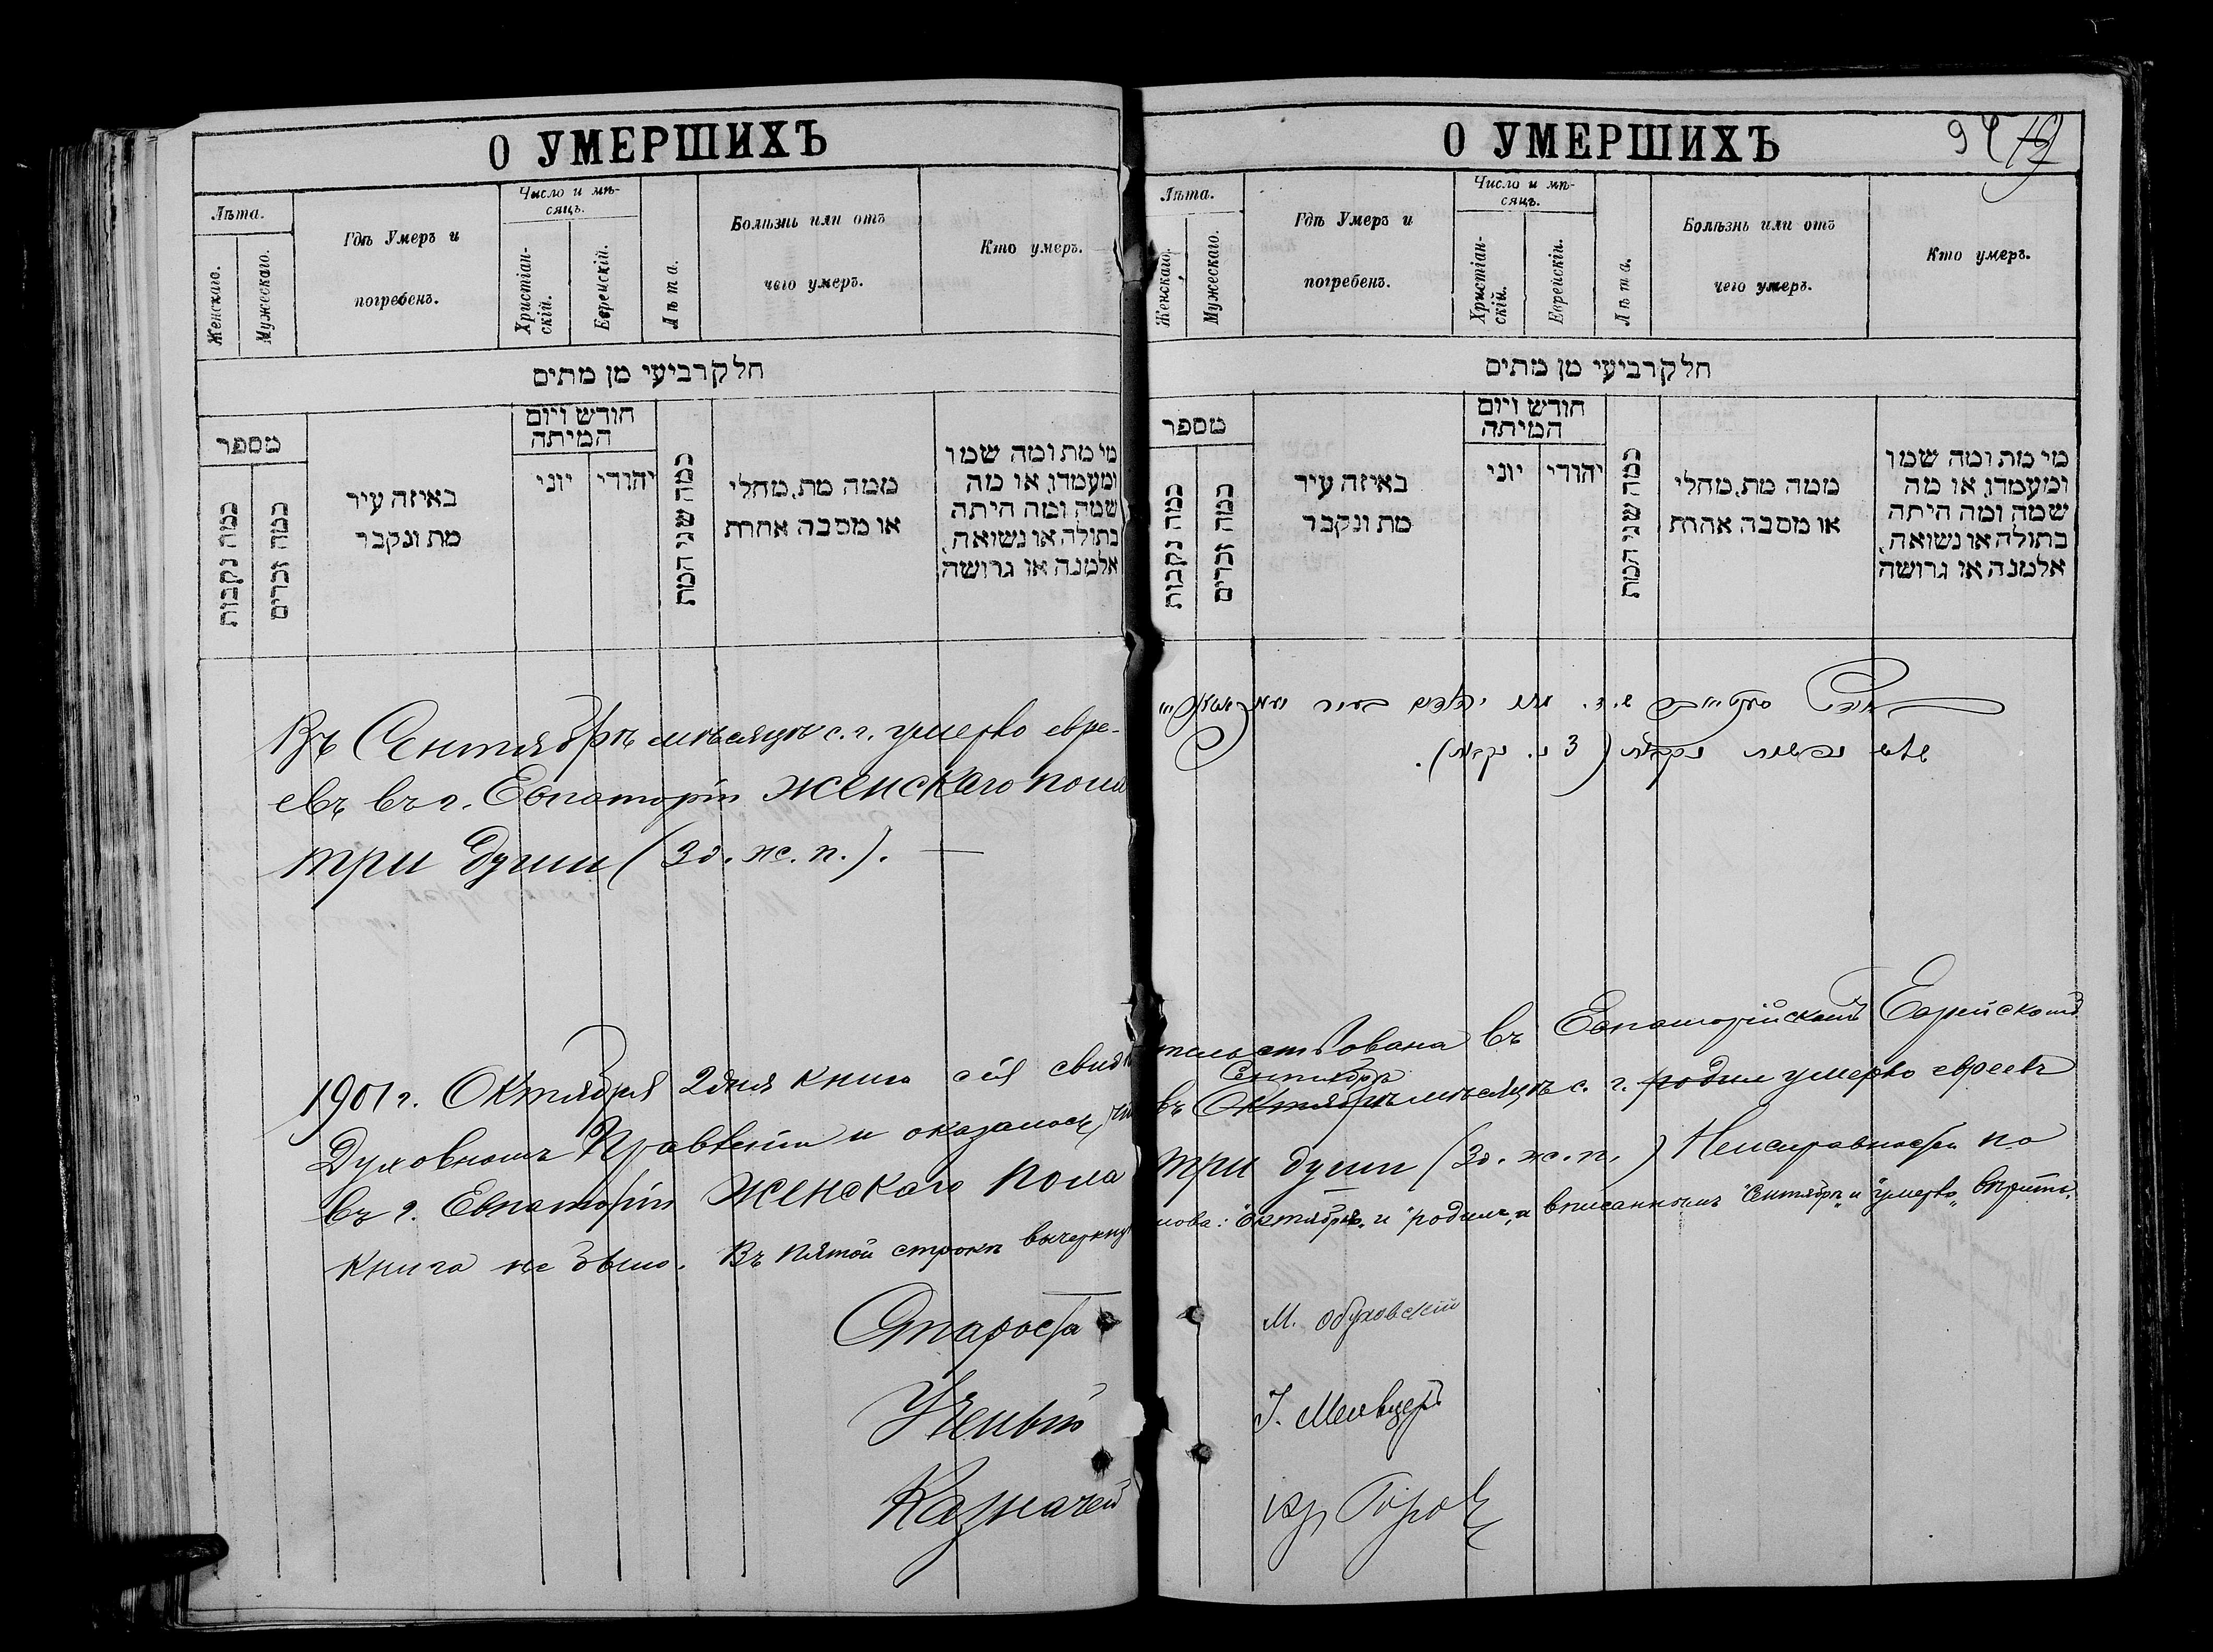 О УМЕРШИХЪ
Лѣта.
Женскаго.
Мужескаго.
Гдѣ Умеръ и
погребенъ.
Число и мѣ-
сяцъ.
Христіан-
скій.
Еврейскій.
Лѣта.
Болѣзнь или отъ
чего умеръ.
Кто умеръ.
חלק רביעי מן מתים
מספר
כמה נקבות
כמה זכרים
באיזה עיר
מת ונקבר
חודש ויום
המיתה
יוני
יהודי
כמה שני המת
ממה מת, מחלי
או מסבה אחרת
מי מת ומה שמו
ומעמדו, או מה
שמה ומה היתה
בתולה או נשואה,
אלמנה או גרושה,
Въ Сентябрѣ мѣсяцѣ с. г. умерло евре-
евъ въ г. Евпаторіи женскаго пола
три души (3 д. ж. п.). —
О УМЕРШИХЪ
94
Лѣта.
Женскаго.
Мужескаго.
Гдѣ Умеръ и
погребенъ.
Число и мѣ-
сяцъ.
Христіан-
скій.
Еврейскій.
Лѣта.
Болѣзнь или отъ
чего умеръ.
Кто умеръ.
חלק רביעי מן מתים
מספר
כמה נקבות
כמה זכרים
באיזה עיר
מת ונקבר
חודש ויום
המיתה
יוני
יהודי
כמה שני המת
ממה מת, מחלי
או מסבה אחרת
מי מת ומה שמו
ומעמדו, או מה
שמה ומה היתה
בתולה או נשואה,
אלמנה או גרושה,
מתו יהודים בעיר
שלש נפשות נקבות (3 נ. נקבות).
1901 г. Октября 2 дня книга сія свидѣтельствована въ Евпаторійскомъ Еврейскомъ
Сентябрѣ
Духовномъ Правленіи и оказалось, что въ Октябрѣ мѣсяцѣ с. г. родил умерло евреевъ
въ г. Евпаторіи женскаго пола три души (3 д. ж. п.) Неисправностей по
книгѣ не было. Въ пятой строкѣ вычеркнут слова: "Октябрѣ" и "родил", а вписаннымъ "Сентябрѣ" и "умерло" вѣрить.
Староста М. Обуховскій
Ученый
Казначей